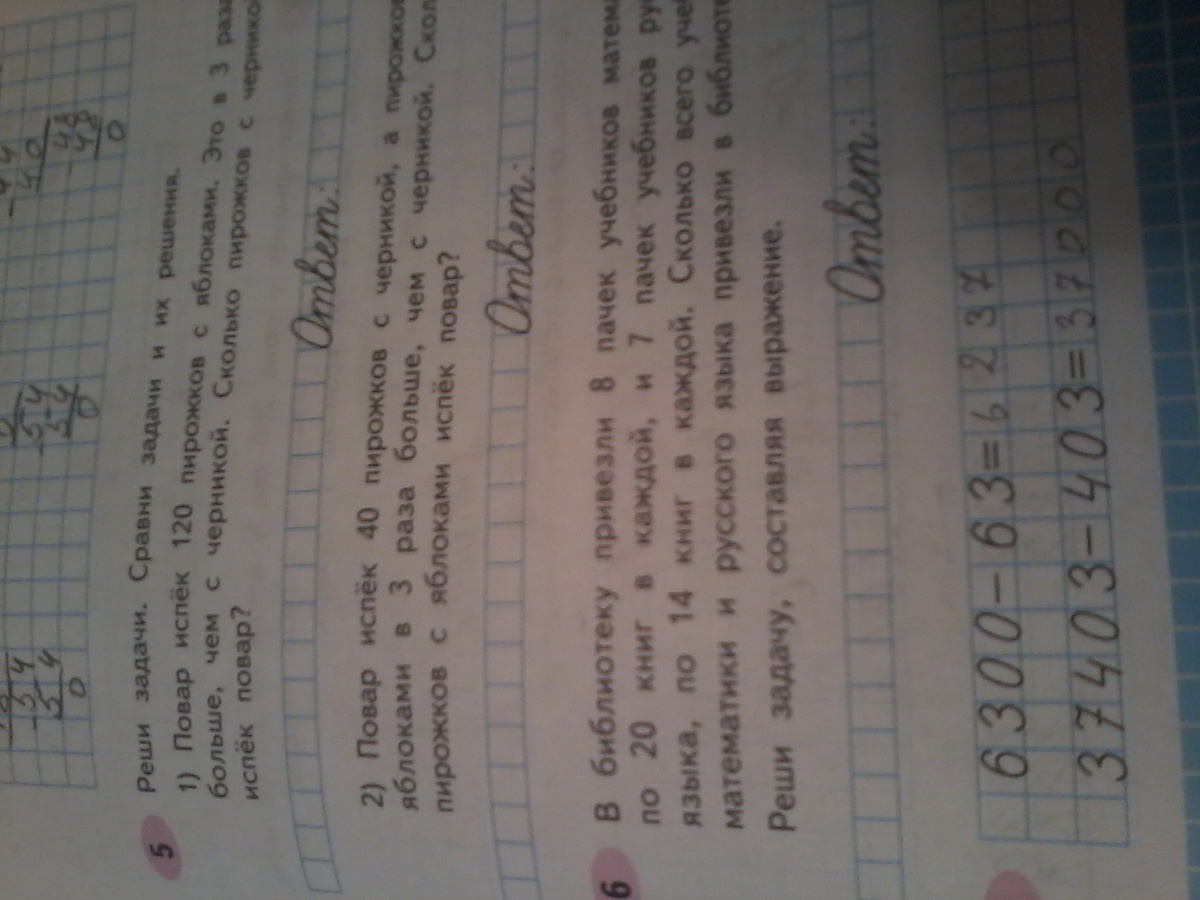 4
40
48
48
0
54
54
0
54
54
0
5 Реши задачи. Сравни задачи и их решения.
1) Повар испёк 120 пирожков с яблоками. Это в 3 раза
больше, чем с черникой. Сколько пирожков с черникой
испёк повар?
Ответ:
2) Повар испёк 40 пирожков с черникой, а пирожков
яблоками в 3 раза больше, чем с черникой.
пирожков с яблоками испёк повар?
Ответ:
6 В библиотеку привезли 8 пачек учебников
по 20 книг в каждой, и 7 пачек учебников
языка, по 14 книг в каждой. Сколько всего
математики и русского языка привезли в
Реши задачу, составляя выражение.
Ответ:
6300-63=6237
37403-403=37000